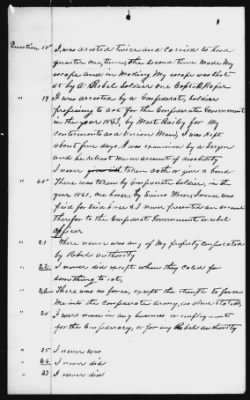 Question 18" I was arrested twice and carried to head
quarter one time, the second time made my
escape and in making my escape was shot
at by a Rebel Soldier one Capt
" 19 I was arrested by a Confederate Soldier
professing to act for the Confederate Government
in the year 1863, by Mat Bailey for my
contentments as a Union Man, I was kept
about five days. I was examined by a Surgen
and he released me on account of disability
I never taken oath or give a bond
" 20" There was taken by Confederate Soldier, in the
year 1861, one horse, by
paid for since I never presented an account
therefor to the Confederate Government or rebel
officer
" 21 There never was any of my property confiscated
by Rebels authority
" 22 I never did except where they called for
something to eat,
" 23 There was no force, except the threats to force
me into the Confederate Army, as above stated,
" 24 I were never in any business or employment
for the Confederacy, or for any Rebel authority
" 25 I never was
" 26 I never did
" 27 I never did